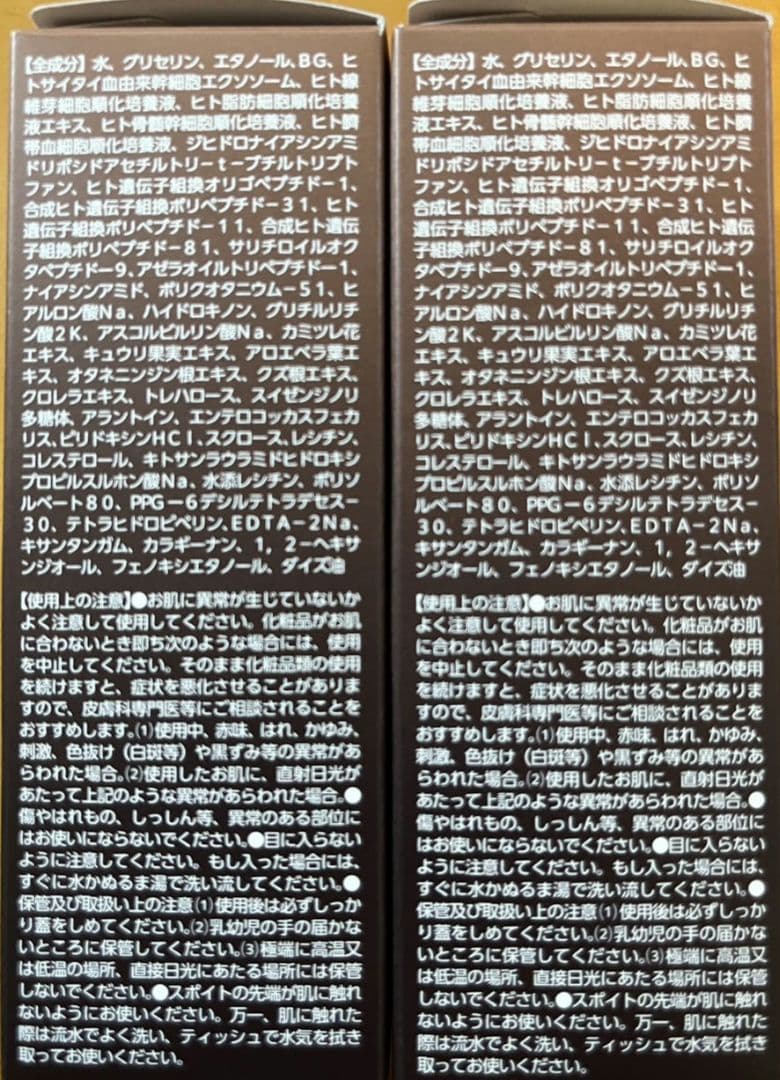 【全成分】水、グリセリン、エタノール、BG、ヒ
トサイタイ血由来幹細胞エクソソーム、ヒト線
維芽細胞順化培養液、ヒト脂肪細胞順化培養
液エキス、ヒト骨髄幹細胞順化培養液、ヒト臍
帯血細胞順化培養液、ジヒドロナイアシンアミ
ドリボシドアセチルトリーtーブチルトリプト
ファン、ヒト遺伝子組換オリゴペプチドー1、
合成ヒト遺伝子組換ポリペプチドー31、ヒト
遺伝子組換ポリペプチドー11、合成ヒト遺伝
子組換ポリペプチドー81、サリチロイルオク
タペプチドー9、アゼラオイルトリペプチドー1、
ナイアシンアミド、ポリクオタニウムー51、ヒ
アルロン酸Na、ハイドロキノン、グリチルリチ
ン酸2K、アスコルビルリン酸Na、カミツレ花
エキス、キュウリ果実エキス、アロエベラ葉エ
キス、オタネニンジン根エキス、クズ根エキス、
クロレラエキス、トレハロース、スイゼンジノリ
多糖体、アラントイン、エンテロコッカスフェカ
リス、ピリドキシンHCl、スクロース、レシチン、
コレステロール、キトサンラウラミドヒドロキシ
プロピルスルホン酸Na、水添レシチン、ポリソ
ルベート80、PPGー6デシルテトラデセスー
30、テトラヒドロピペリン、EDTAー2Na、
キサンタンガム、カラギーナン、1，2ーヘキサ
ンジオール、フェノキシエタノール、ダイズ油
【使用上の注意】●お肌に異常が生じていないか
よく注意して使用してください。化粧品がお肌
に合わないとき即ち次のような場合には、使用
を中止してください。そのまま化粧品類の使用
を続けますと、症状を悪化させることがありま
すので、皮膚科専門医等にご相談されることを
おすすめします。⑴使用中、赤味、はれ、かゆみ、
刺激、色抜け（白斑等）や黒ずみ等の異常があ
らわれた場合。⑵使用したお肌に、直射日光が
あたって上記のような異常があらわれた場合。●
傷やはれもの、しっしん等、異常のある部位に
はお使いにならないでください。●目に入らない
ように注意してください。もし入った場合には、
すぐに水かぬるま湯で洗い流してください。●
保管及び取扱い上の注意⑴使用後は必ずしっか
り蓋をしめてください。⑵乳幼児の手の届かな
いところに保管してください。⑶極端に高温又
は低温の場所、直接日光にあたる場所には保管
しないでください。●スポイトの先端が肌に触れ
ないようにお使いください。万一、肌に触れた
際は流水でよく洗い、ティッシュで水気を拭き
取ってお使いください。
【全成分】水、グリセリン、エタノール、BG、ヒ
トサイタイ血由来幹細胞エクソソーム、ヒト線
維芽細胞順化培養液、ヒト脂肪細胞順化培養
液エキス、ヒト骨髄幹細胞順化培養液、ヒト臍
帯血細胞順化培養液、ジヒドロナイアシンアミ
ドリボシドアセチルトリーtーブチルトリプト
ファン、ヒト遺伝子組換オリゴペプチドー1、
合成ヒト遺伝子組換ポリペプチドー31、ヒト
遺伝子組換ポリペプチドー11、合成ヒト遺伝
子組換ポリペプチドー81、サリチロイルオク
タペプチドー9、アゼラオイルトリペプチドー1、
ナイアシンアミド、ポリクオタニウムー51、ヒ
アルロン酸Na、ハイドロキノン、グリチルリチ
ン酸2K、アスコルビルリン酸Na、カミツレ花
エキス、キュウリ果実エキス、アロエベラ葉エ
キス、オタネニンジン根エキス、クズ根エキス、
クロレラエキス、トレハロース、スイゼンジノリ
多糖体、アラントイン、エンテロコッカスフェカ
リス、ピリドキシンHCl、スクロース、レシチン、
コレステロール、キトサンラウラミドヒドロキシ
プロピルスルホン酸Na、水添レシチン、ポリソ
ルベート80、PPGー6デシルテトラデセスー
30、テトラヒドロピペリン、EDTAー2Na、
キサンタンガム、カラギーナン、1，2ーヘキサ
ンジオール、フェノキシエタノール、ダイズ油
【使用上の注意】●お肌に異常が生じていないか
よく注意して使用してください。化粧品がお肌
に合わないとき即ち次のような場合には、使用
を中止してください。そのまま化粧品類の使用
を続けますと、症状を悪化させることがありま
すので、皮膚科専門医等にご相談されることを
おすすめします。⑴使用中、赤味、はれ、かゆみ、
刺激、色抜け（白斑等）や黒ずみ等の異常があ
らわれた場合。⑵使用したお肌に、直射日光が
あたって上記のような異常があらわれた場合。●
傷やはれもの、しっしん等、異常のある部位に
はお使いにならないでください。●目に入らない
ように注意してください。もし入った場合には、
すぐに水かぬるま湯で洗い流してください。●
保管及び取扱い上の注意⑴使用後は必ずしっか
り蓋をしめてください。⑵乳幼児の手の届かな
いところに保管してください。⑶極端に高温又
は低温の場所、直接日光にあたる場所には保管
しないでください。●スポイトの先端が肌に触れ
ないようにお使いください。万一、肌に触れた
際は流水でよく洗い、ティッシュで水気を拭き
取ってお使いください。